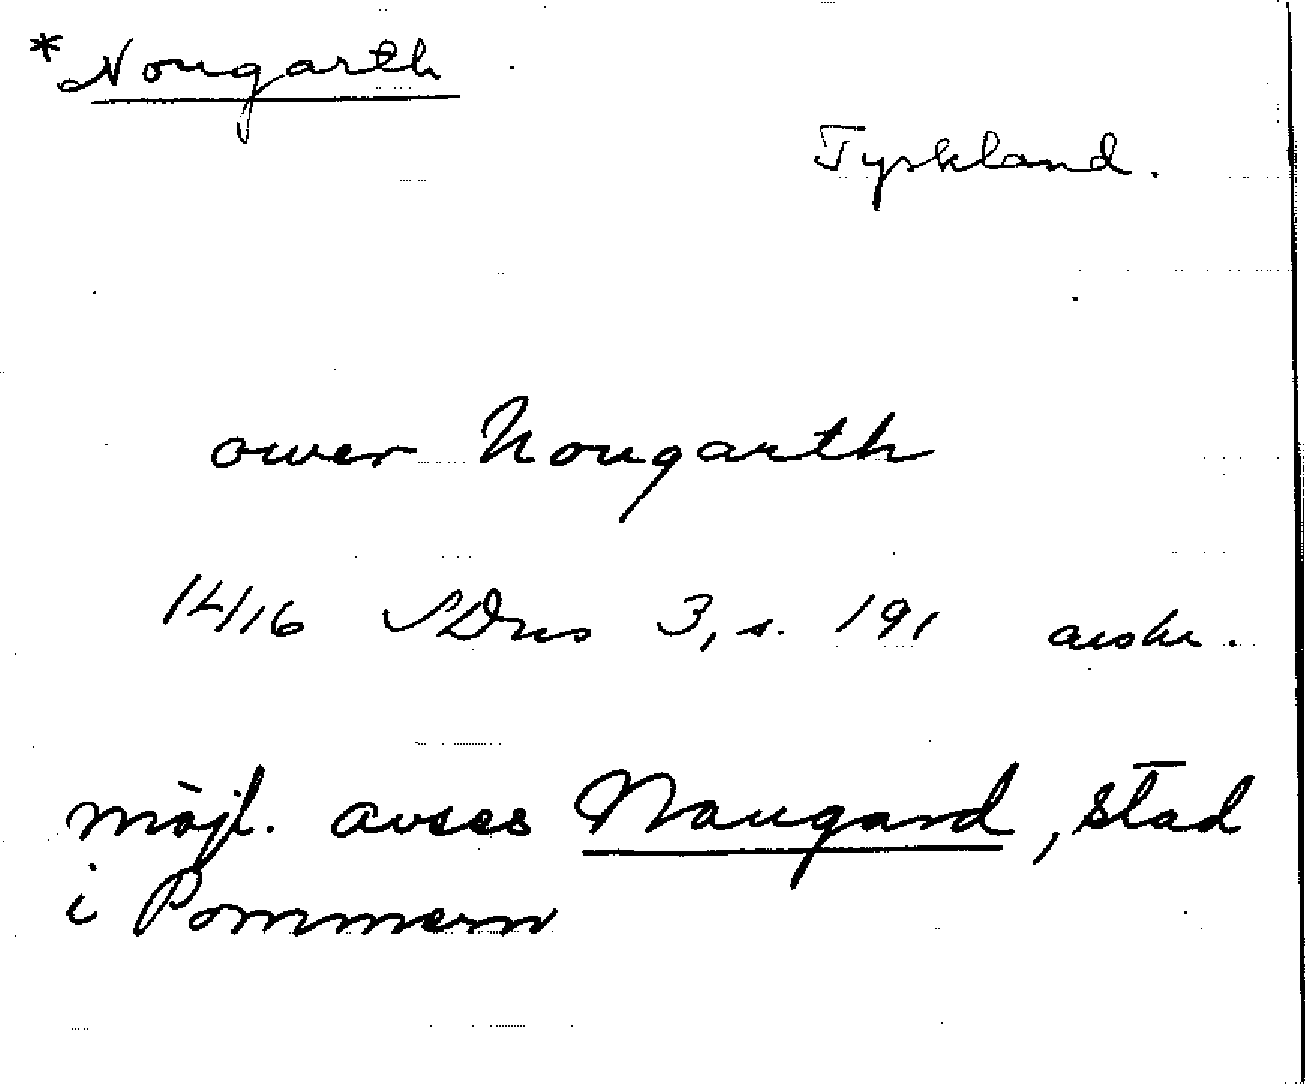 *Nougarth
Tyskland.
ower Nougarth
1416 SDns 3, s. 191 avskr.
möjl. avses Naugard, stad
i Pommern